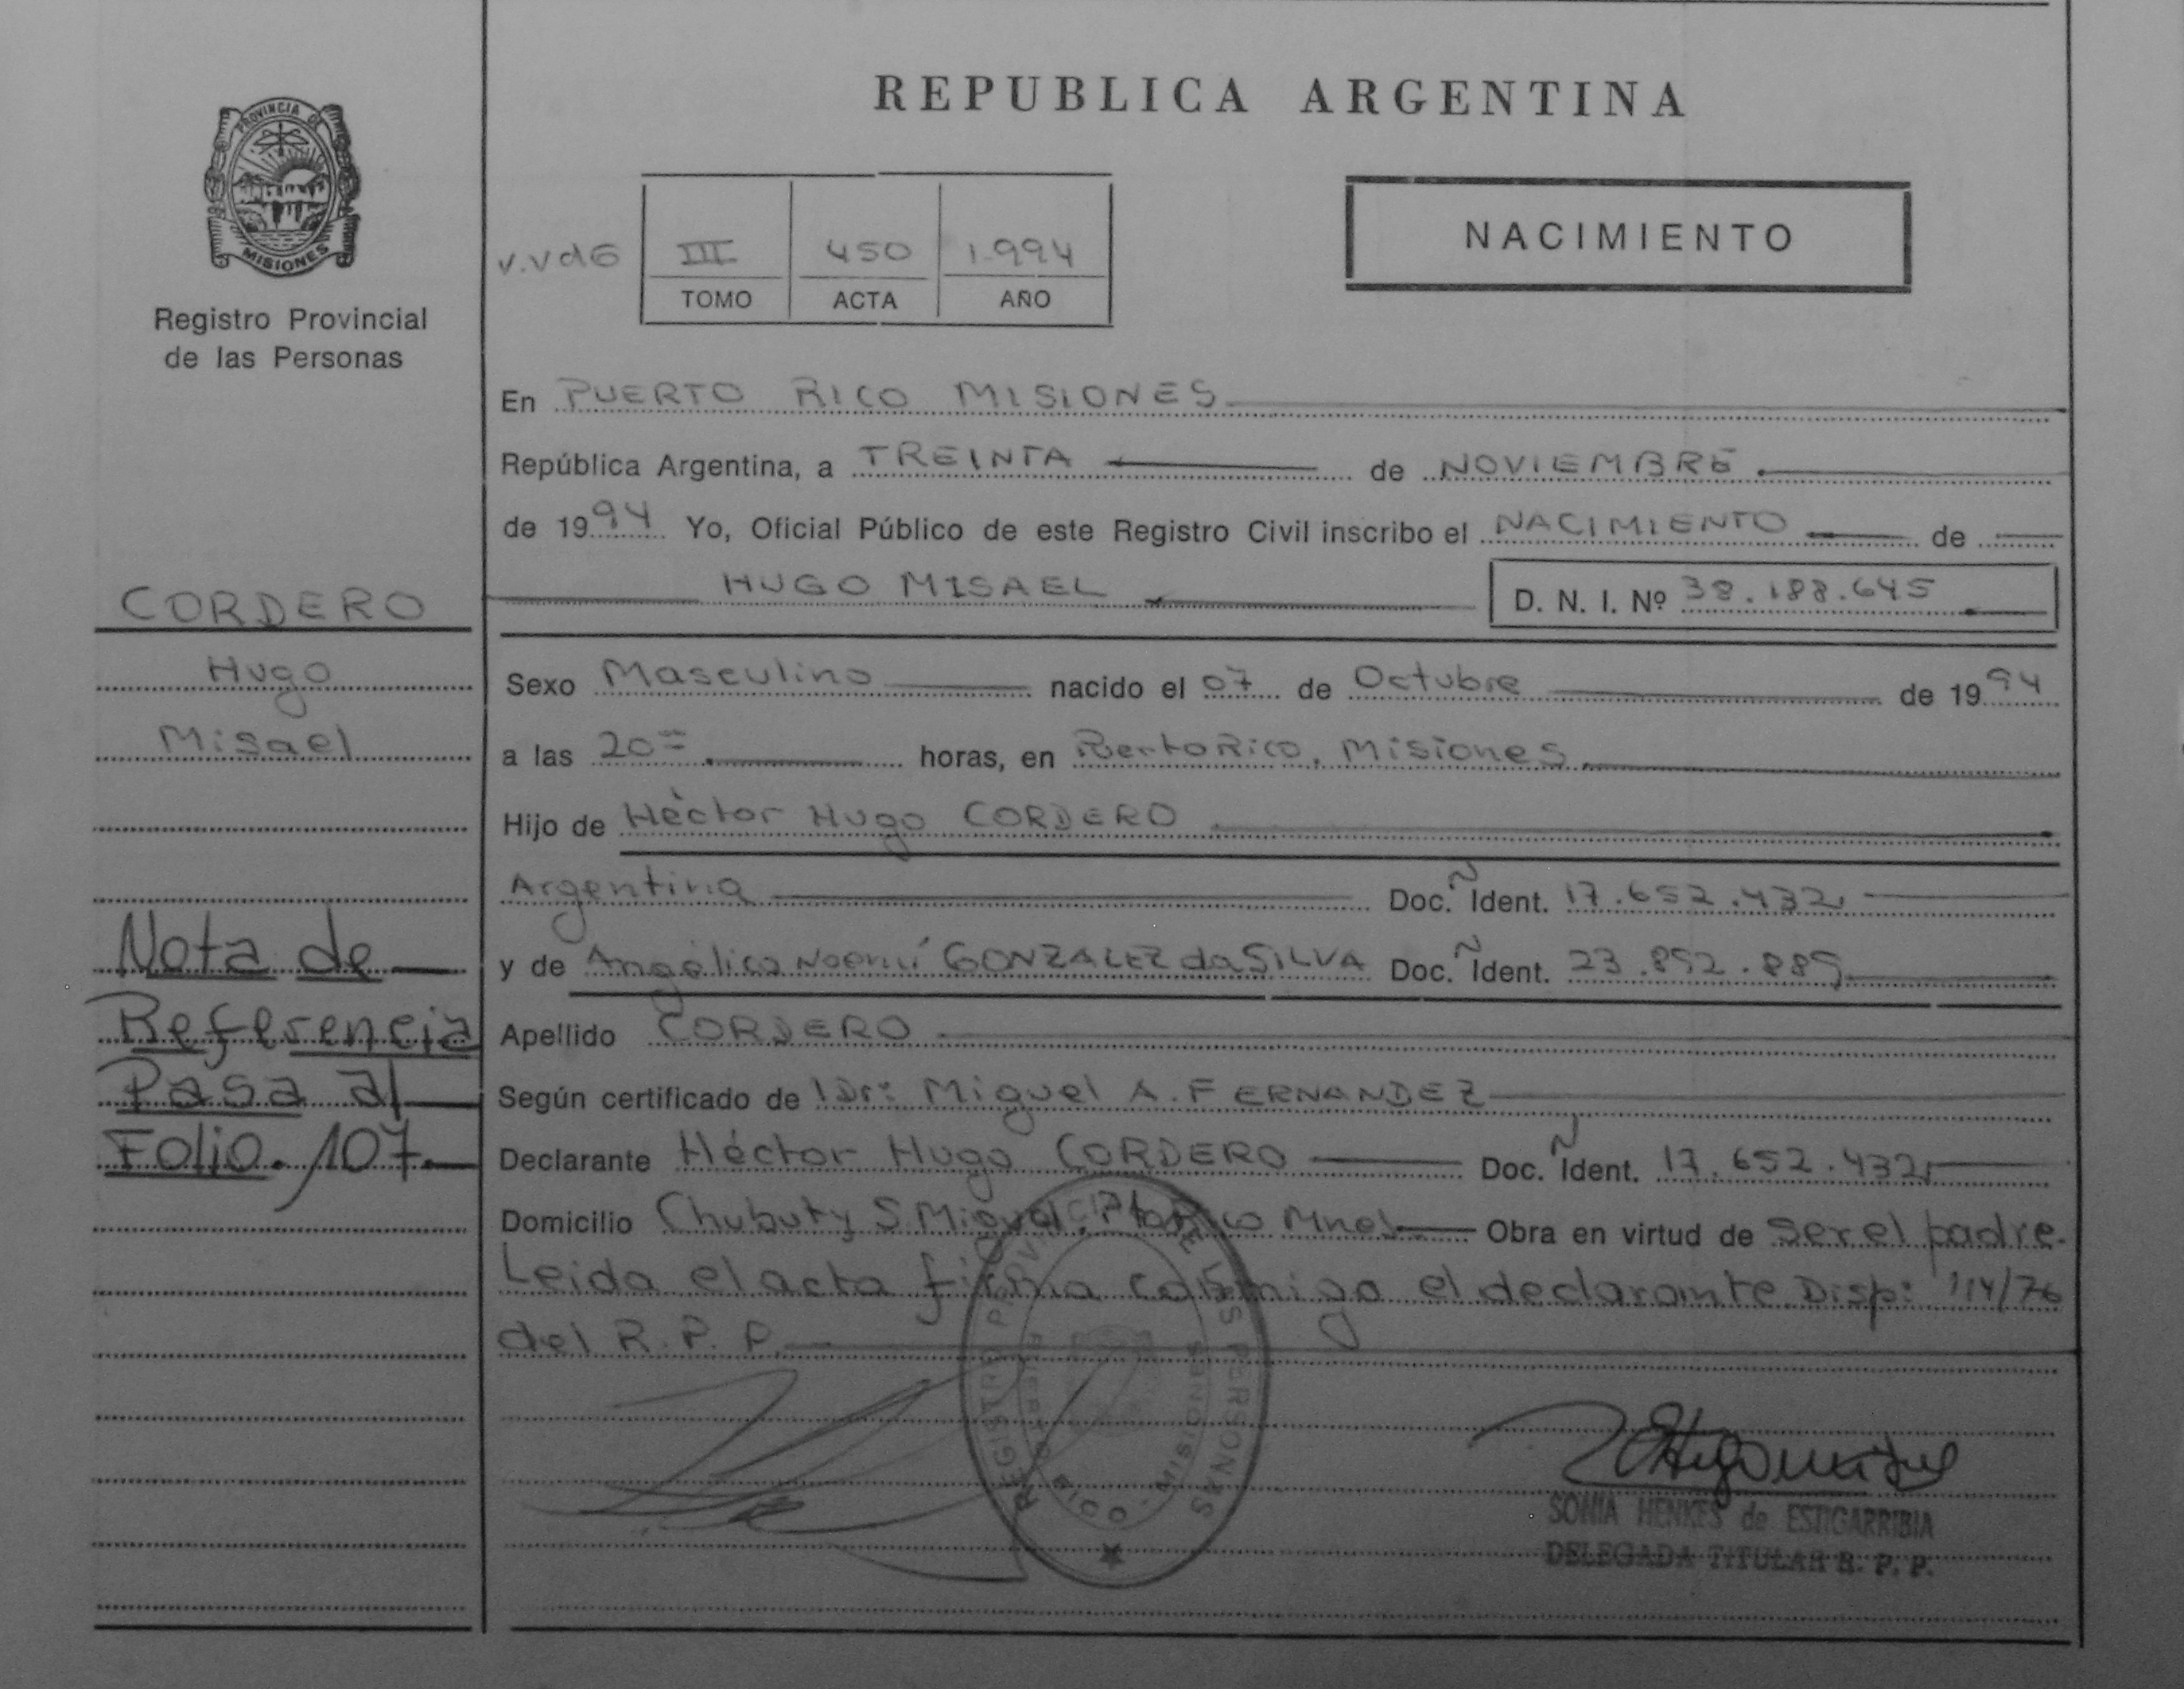 REPUBLICA ARGENTINA
PROVINCIA DE
MISIONES
Registro Provincial
de las Personas
NACIMIENTO
III 450 1.994
TOMO ACTA AÑO
En PUERTO RICO MISIONES
República Argentina, a TREINTA de NOVIEMBRE
de 1994 Yo, Oficial Público de este Registro Civil inscribo el NACIMIENTO de
HUGO MISAEL D. N. I. Nº 38.188.645
CORDERO
Hugo
Misael
Nota de
Referencia
Pasa al
Folio. 107.
Sexo Masculino nacido el 07 de Octubre de 1994
a las 20 horas, en Puerto Rico, Misiones
Hijo de Héctor Hugo CORDERO
Argentina Doc. Ident. 17.652.432
y de Angélica Noemí GONZALEZ da SILVA Doc. Ident. 23.892.889
Apellido CORDERO
Según certificado de Dr: Miguel A. FERNANDEZ
Declarante Héctor Hugo CORDERO Doc. Ident. 17.652.432
Domicilio Chubut y S. Miguel, Pto Rico Mnes Obra en virtud de ser el padre.
Leida el acta firma conmigo el declarante Disp: 114/76
del R. P. P.
REGISTRO PROVINCIAL DE LAS PERSONAS
PUERTO RICO - MISIONES
SONIA HENKES de ESTIGARRIBIA
DELEGADA TITULAR R. P. P.